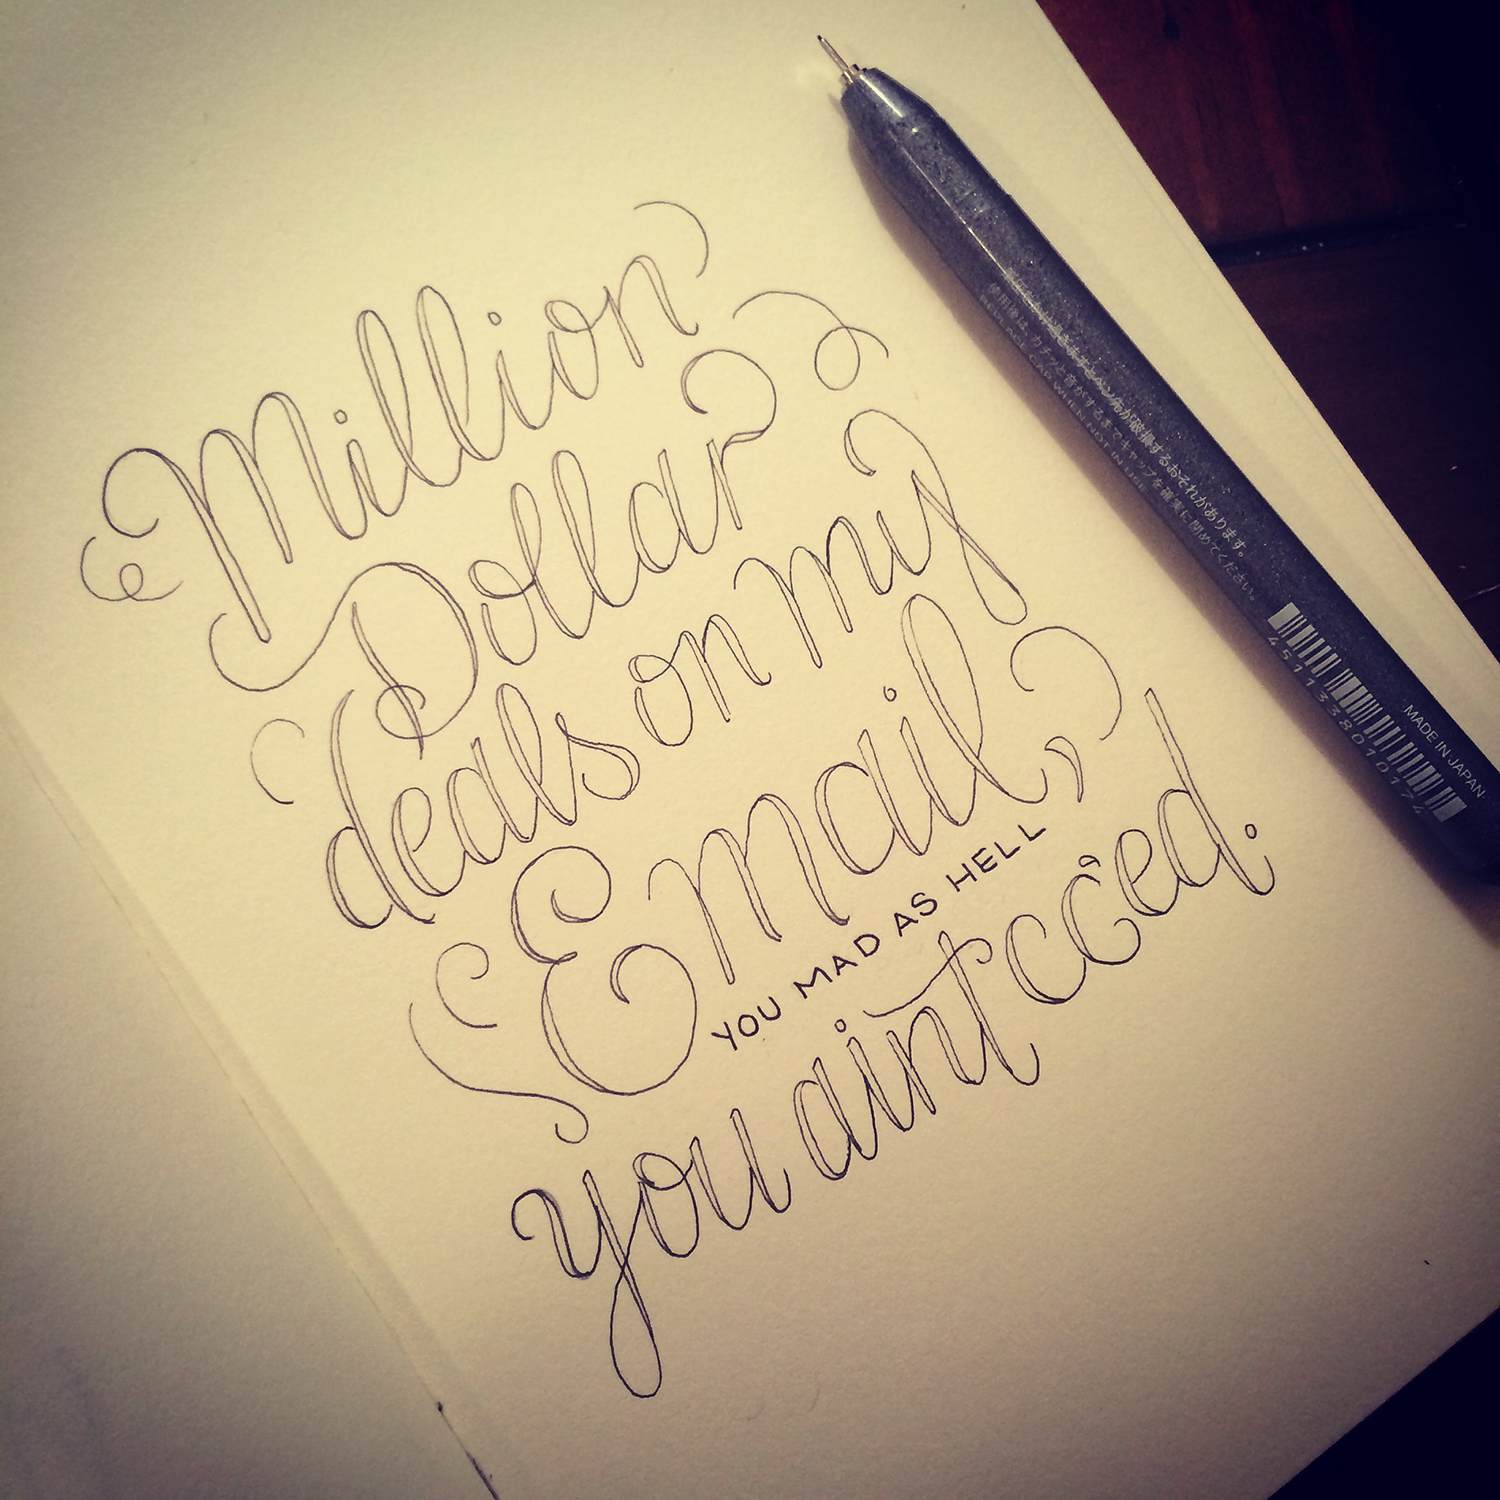 Million
Dollar
deals on my
Email,
YOU MAD AS HELL
you aint cc'ed.
使用後は、カチッと音がするまでキャップを確実に閉めてください。
REPLACE CAP WHEN NOT IN USE.
4511338010174
MADE IN JAPAN